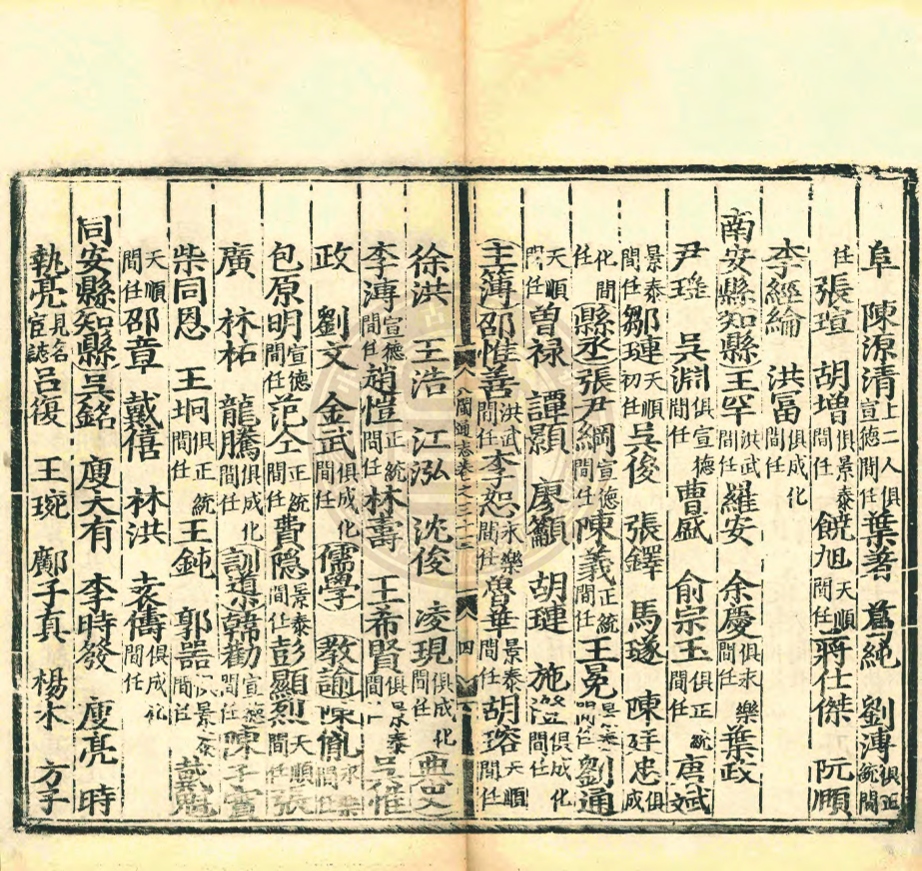 阜 陳源清上二人俱宣德間任葉善 為繩 劉溥俱正統間
任張瑄 胡增俱景泰間任饒旭天順間任蔣仕傑 阮順
李經綸 洪冨俱成化間任
南安縣知縣王罕洪武間任羅安 余慶俱永樂間任葉政
尹瑾 吳淵俱宣德間任曹盛 俞宗玉俱正統間任唐斌
景泰間任鄒璉天順初任吳俊 張鐸 馬璲 陳廷忠俱成
化間任縣丞張尹綱宣德間任陳義正統間任王冕景泰間任劉通
天順間任曽禄 譚顯 廖籲 胡璉 施澄俱成化間任
主簿邵惟善洪武間任李恕永樂間任魯華景泰間任胡瑢天順間任
八閩通志卷之三十三 四
徐洪 王浩 江泓 沈俊 凌現俱成化間任典史
李溥宣德間任趙愷正統間任林壽 王希賢俱景泰間任吳惟
政 劉文 金武俱成化間任儒學教諭陳胤永樂間任
包原明宣德間任范仝正統間任費隠景泰間任彭顯烈天順間任張
廣 林柘 龍騰俱成化間任訓導韓勸宣德間任陳子實
柴同恩 王坰俱正統間任王鈍 郭噐俱景泰間任戴冕
天順間任邵章 戴僖 林洪 袁儔俱成化間任
同安縣知縣吳銘 廋大有 李時發 廋亮 時
執亮見名宦誌呂復 王琬 鄺子真 楊木 方子